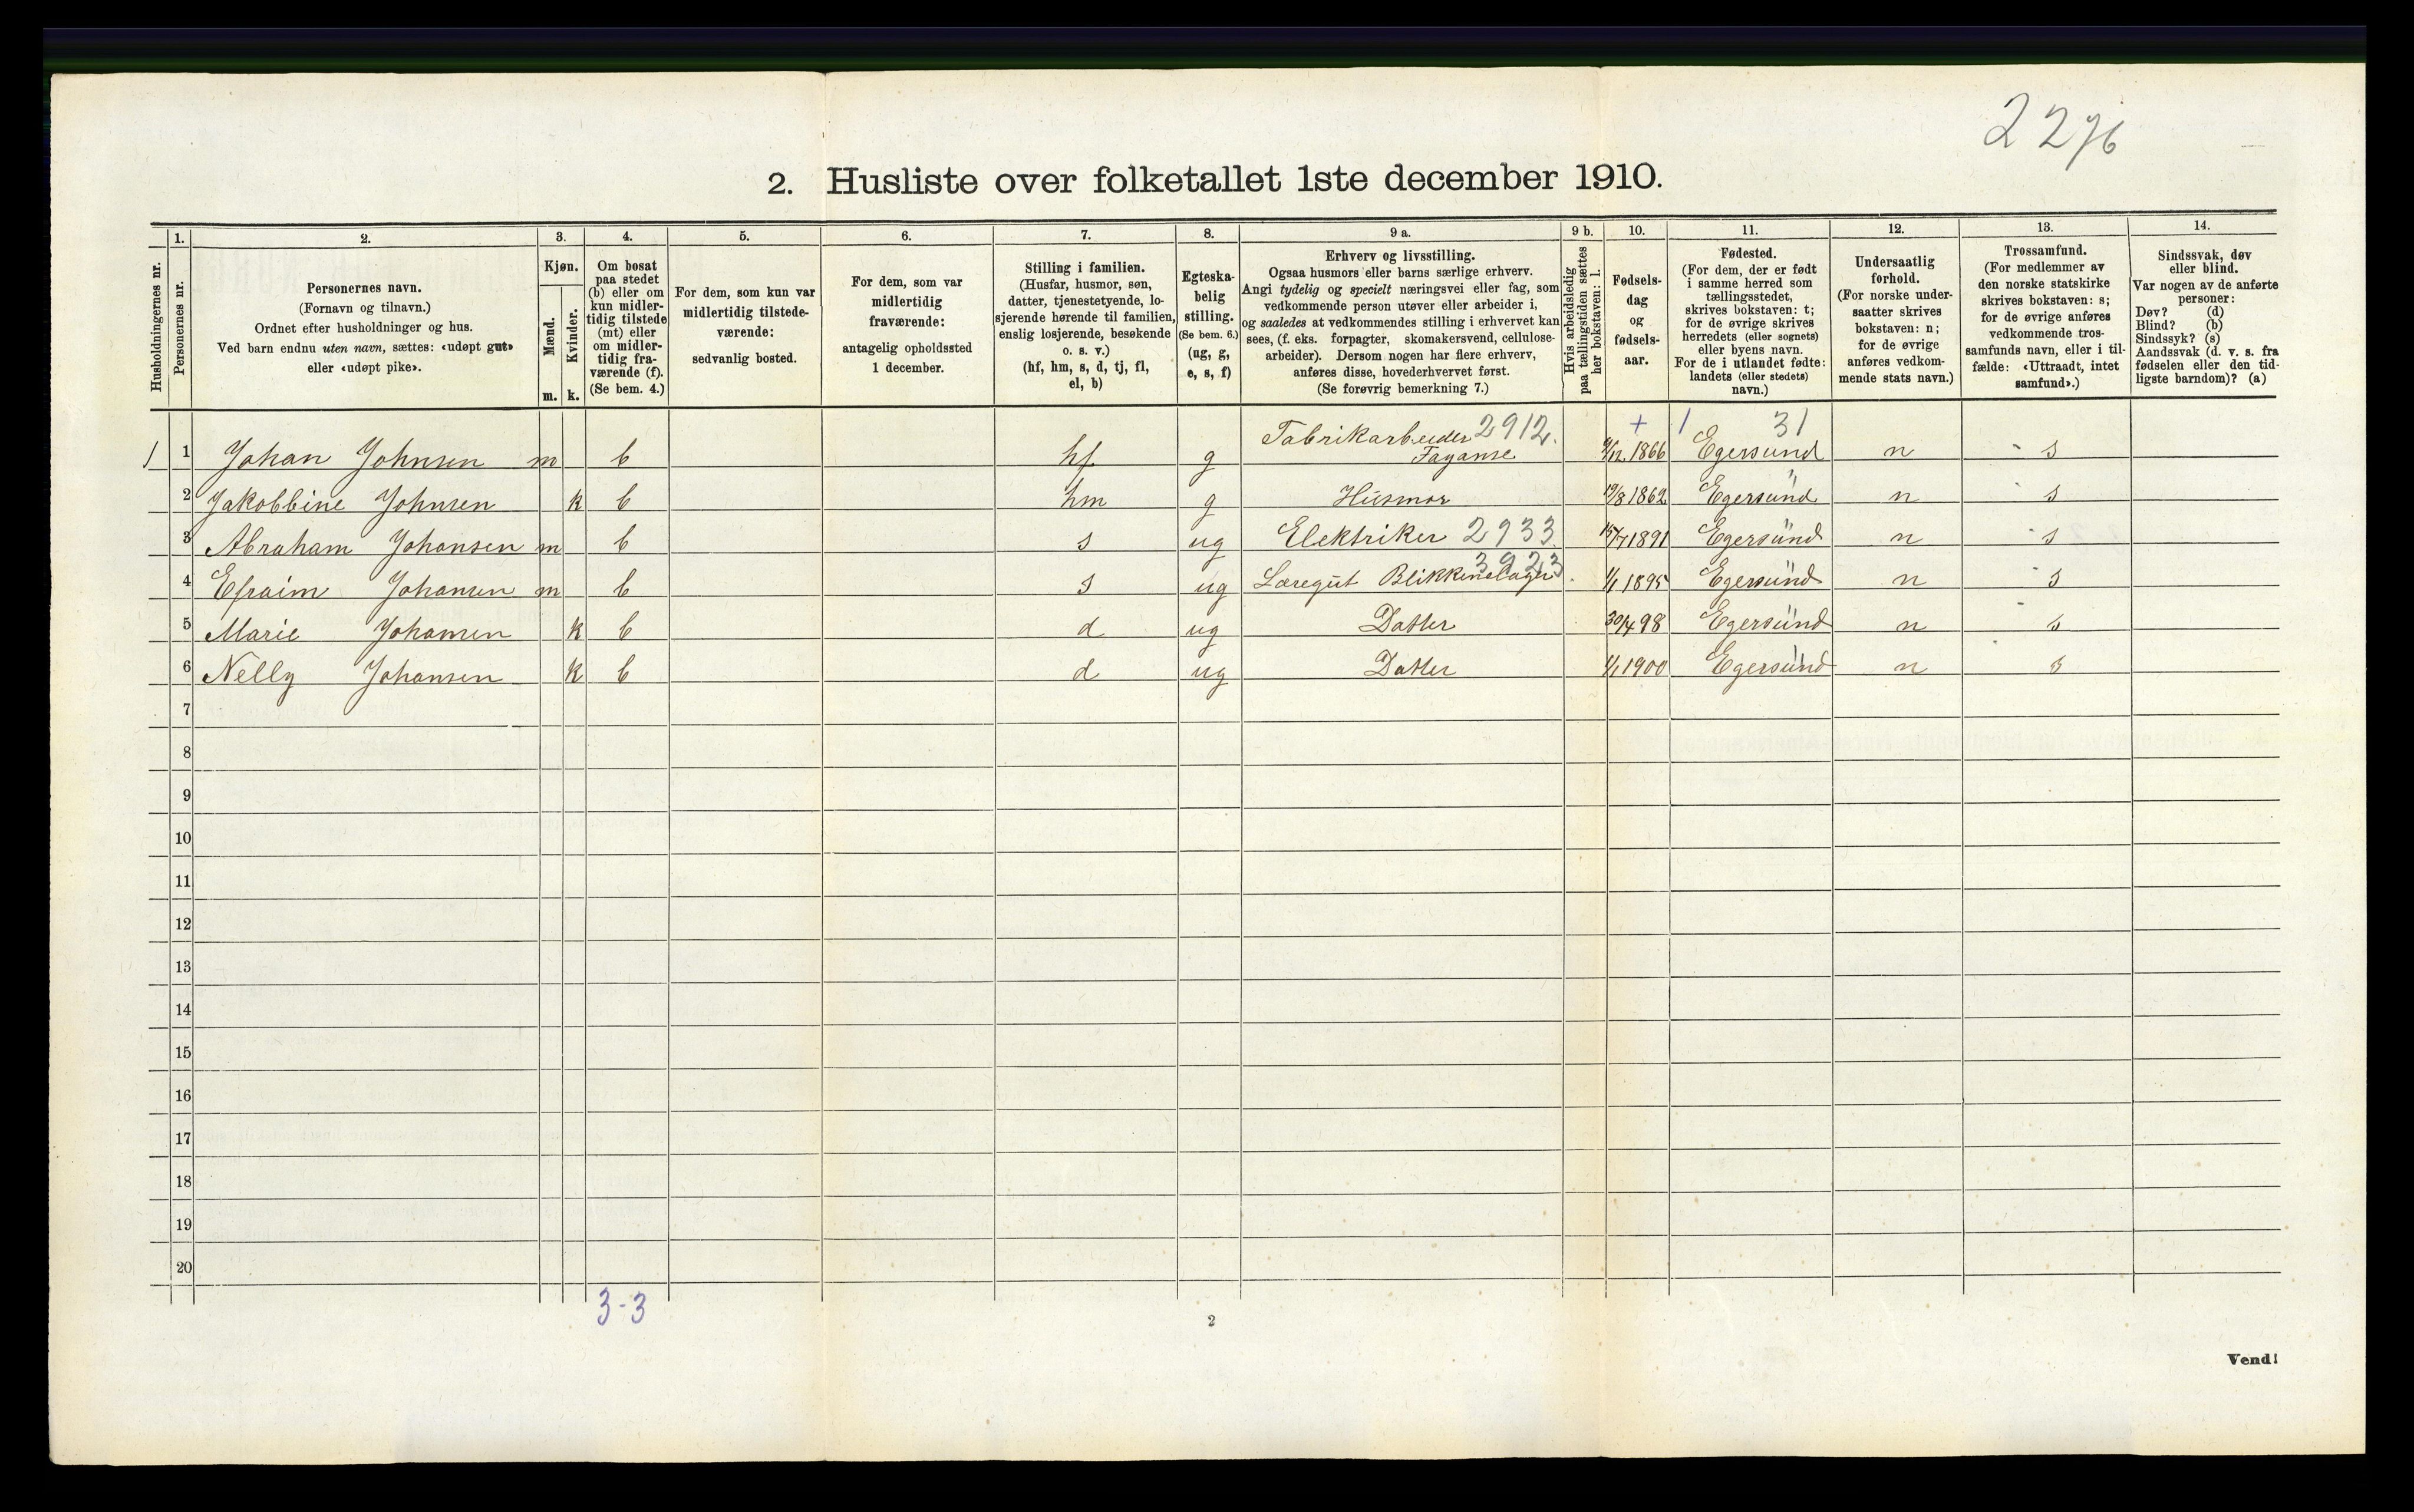 2276
2. Husliste over folketallet 1ste december 1910.
Husholdningernes nr.
1.
Personernes nr.
2.
Personernes navn.
(Fornavn og tilnavn.)
Ordnet efter husholdninger og hus.
Ved barn endnu uten navn, sættes: «udøpt gut»
eller «udøpt pike».
3.
Kjøn.
Mænd.
Kvinder.
m. k.
4.
Om bosat
paa stedet
(b) eller om
kun midler-
tidig tilstede
(mt) eller
om midler-
tidig fra-
værende (f).
(Se bem. 4.)
5.
For dem, som kun var
midlertidig tilstede-
værende:
sedvanlig bosted.
6.
For dem, som var
midlertidig
fraværende:
antagelig opholdssted
1 december.
7.
Stilling i familien.
(Husfar, husmor, søn,
datter, tjenestetyende, lo-
sjerende hørende til familien,
enslig losjerende, besøkende
o. s. v.)
(hf, hm, s, d, tj, fl,
el, b)
8.
Egteska-
belig
stilling.
(Se bem. 6.)
(ug, g,
e, s, f)
9 a.
Erhverv og livsstilling.
Ogsaa husmors eller barns særlige erhverv.
Angi tydelig og specielt næringsvei eller fag, som
vedkommende person utøver eller arbeider i,
og saaledes at vedkommendes stilling i erhvervet kan
sees, (f. eks. forpagter, skomakersvend, cellulose-
arbeider). Dersom nogen har flere erhverv,
anføres disse, hovederhvervet først.
(Se forøvrig bemerkning 7.)
9 b.
Hvis arbeidsledig
paa tællingstiden sættes
her bokstaven: l.
10.
Fødsels-
dag
og
fødsels-
aar.
11.
Fødested.
(For dem, der er født
i samme herred som
tællingsstedet,
skrives bokstaven: t;
for de øvrige skrives
herredets (eller sognets)
eller byens navn.
For de i utlandet fødte:
landets (eller stedets)
navn.)
12.
Undersaatlig
forhold.
(For norske under-
saatter skrives
bokstaven: n;
for de øvrige
anføres vedkom-
mende stats navn.)
13.
Trossamfund.
(For medlemmer av
den norske statskirke
skrives bokstaven: s;
for de øvrige anføres
vedkommende tros-
samfunds navn, eller i til-
fælde: «Uttraadt, intet
samfund».)
14.
Sindssvak, døv
eller blind.
Var nogen av de anførte
personer:
Døv? (d)
Blind? (b)
Sindssyk? (s)
Aandssvak (d. v. s. fra
fødselen eller den tid-
ligste barndom)? (a)
Fabrikarbeider 2912. + 1 31
1 1 Johan Johnsen m b hf g Fayanse 9/12 1866 Egersund n s
2 Jakobbine Johnsen k b hm g Husmor 19/8 1862 Egersund n s
3 Abraham Johansen m b s ug Elektriker 2933 15/7 1891 Egersund n s
3923
4 Efraim Johansen m b s ug Læregut Blikkenslager 1/1 1895 Egersund n s
5 Marie Johansen k b d ug Datter 30/4 98 Egersund n s
6 Nelly Johansen k b d ug Datter 1/1 1900 Egersund n s
7
8
9
10
11
12
13
14
15
16
17
18
19
20
3-3
2
Vend!